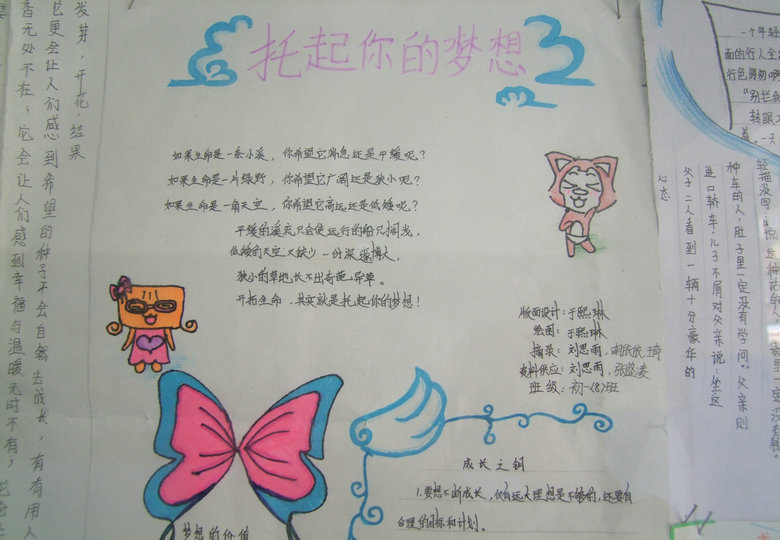 托起你的梦想
如果生命是一条小溪，你希望它湍急还是平缓呢？
如果生命是一片绿野，你希望它广阔还是狭小呢？
如果生命是一角天空，你希望它高远还是低矮呢？
平缓的溪流只会使远行的船只搁浅，
低矮的天空又缺少一份深邃博大，
狭小的草地长不出奇葩异草。
开拓生命，其实就是托起你的梦想！
版面设计：于熙琳
绘图：于熙琳
摘录：刘思雨，
资料供应：刘思雨，张盛凌
班级：初一〈8〉班
成长之钥
1.要想不断成长，仅有远大理想是不够的，还要有
合理的目标和计划。
梦想的价值
发芽，开花，结果
它更会让人们感到希望的种子会自然去成长，有有用人
香无处不在；它会让人们感到幸福与温暖无时不有；
一个年轻
面的行人全
行色匆匆
“别拦我
转眼
一天
心态
父子二人看到一辆十分豪华的
进口轿车，儿子不屑对父亲说：坐这
种车的人，肚子里一定没有学问。”父亲则
轻描淡写